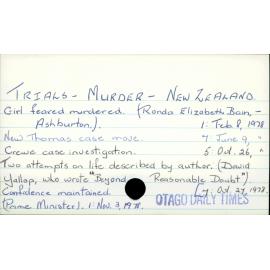 TRIALS - MURDER - NEW ZEALAND.
Girl feared murdered. (Ronda Elizabeth Bain, -
Ashburton.). 1: Feb. 8, 1978
New Thomas case move. 7: June 9, "
Crewe case investigation. 5: Oct. 26, "
Two attempts on life described by author. (David
Yallop, who wrote "Beyond Reasonable Doubt")
Confidence maintained. 7: Oct. 27, 1978.
(Prime Minister). 1: Nov. 3, 1978.
OTAGO DAILY TIMES